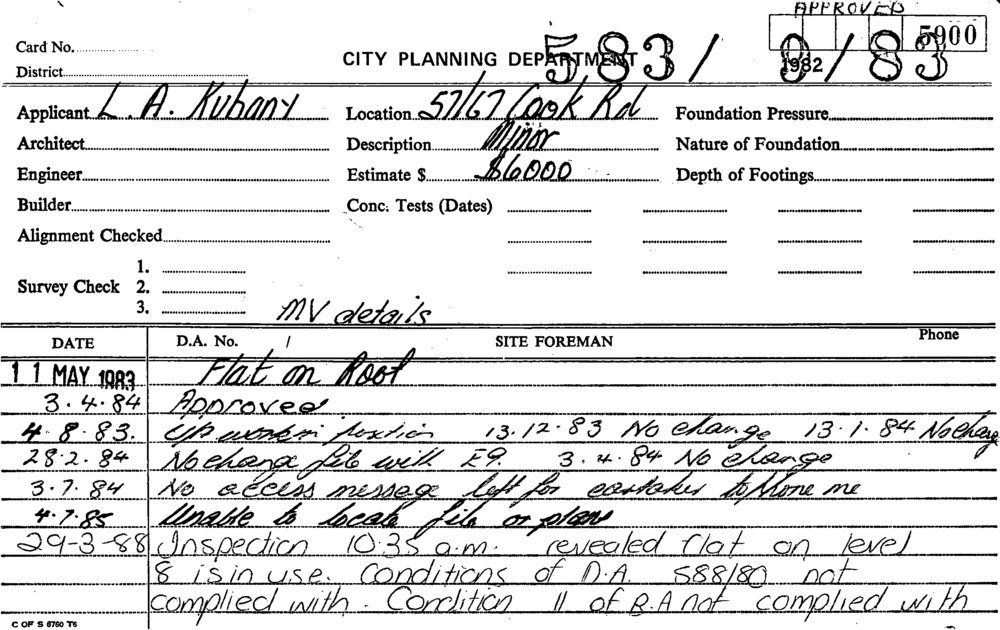 APPROVED
Card No.
5000
CITY PLANNING DEPARTMENT
583/ 9/83
1982
District
Applicant L. A. Kubany Location 57/67 Cook Rd Foundation Pressure
Architect Description Minor Nature of Foundation
Engineer Estimate $ $6000 Depth of Footings
Builder Conc. Tests (Dates)
Alignment Checked
1.
Survey Check 2.
3.
MV details
DATE D.A. No. / SITE FOREMAN Phone
11 MAY 1983 Flat on Roof
3.4.84 Approved
4.8.83. work in position 13.12.83 No change 13.1.84 No change
28.2.84 No change file with E9. 3.4.84 No change
3.7.84 No access message left for caretaker to phone me
4.7.85 Unable to locate file or plans
29-3-88 Inspection 10:35 a.m. revealed flat on level
8 is in use. Conditions of D.A. 588/80 not
complied with. Condition 11 of B.A not complied with
C OF S 6760 T6